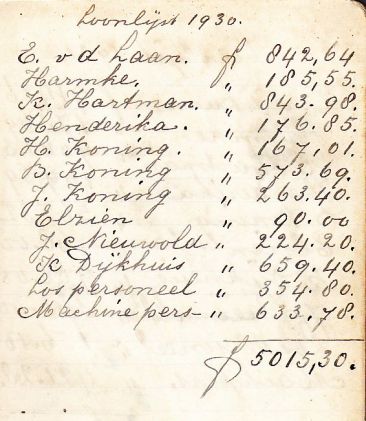 Loonlijst 1930.
E. v d Laan. f 842,64
Harmke. " 185,55.
K. Hartman. " 843.98.
Henderika. " 176.85.
H. Koning. " 167,01.
B. Koning " 573.69.
J. Koning " 263.40.
Elzien " 90.00
J. Nieuwold " 224.20.
K Dijkhuis " 659.40.
Los personeel " 354.80.
Machine pers- " 633.78.
f 5015,30.